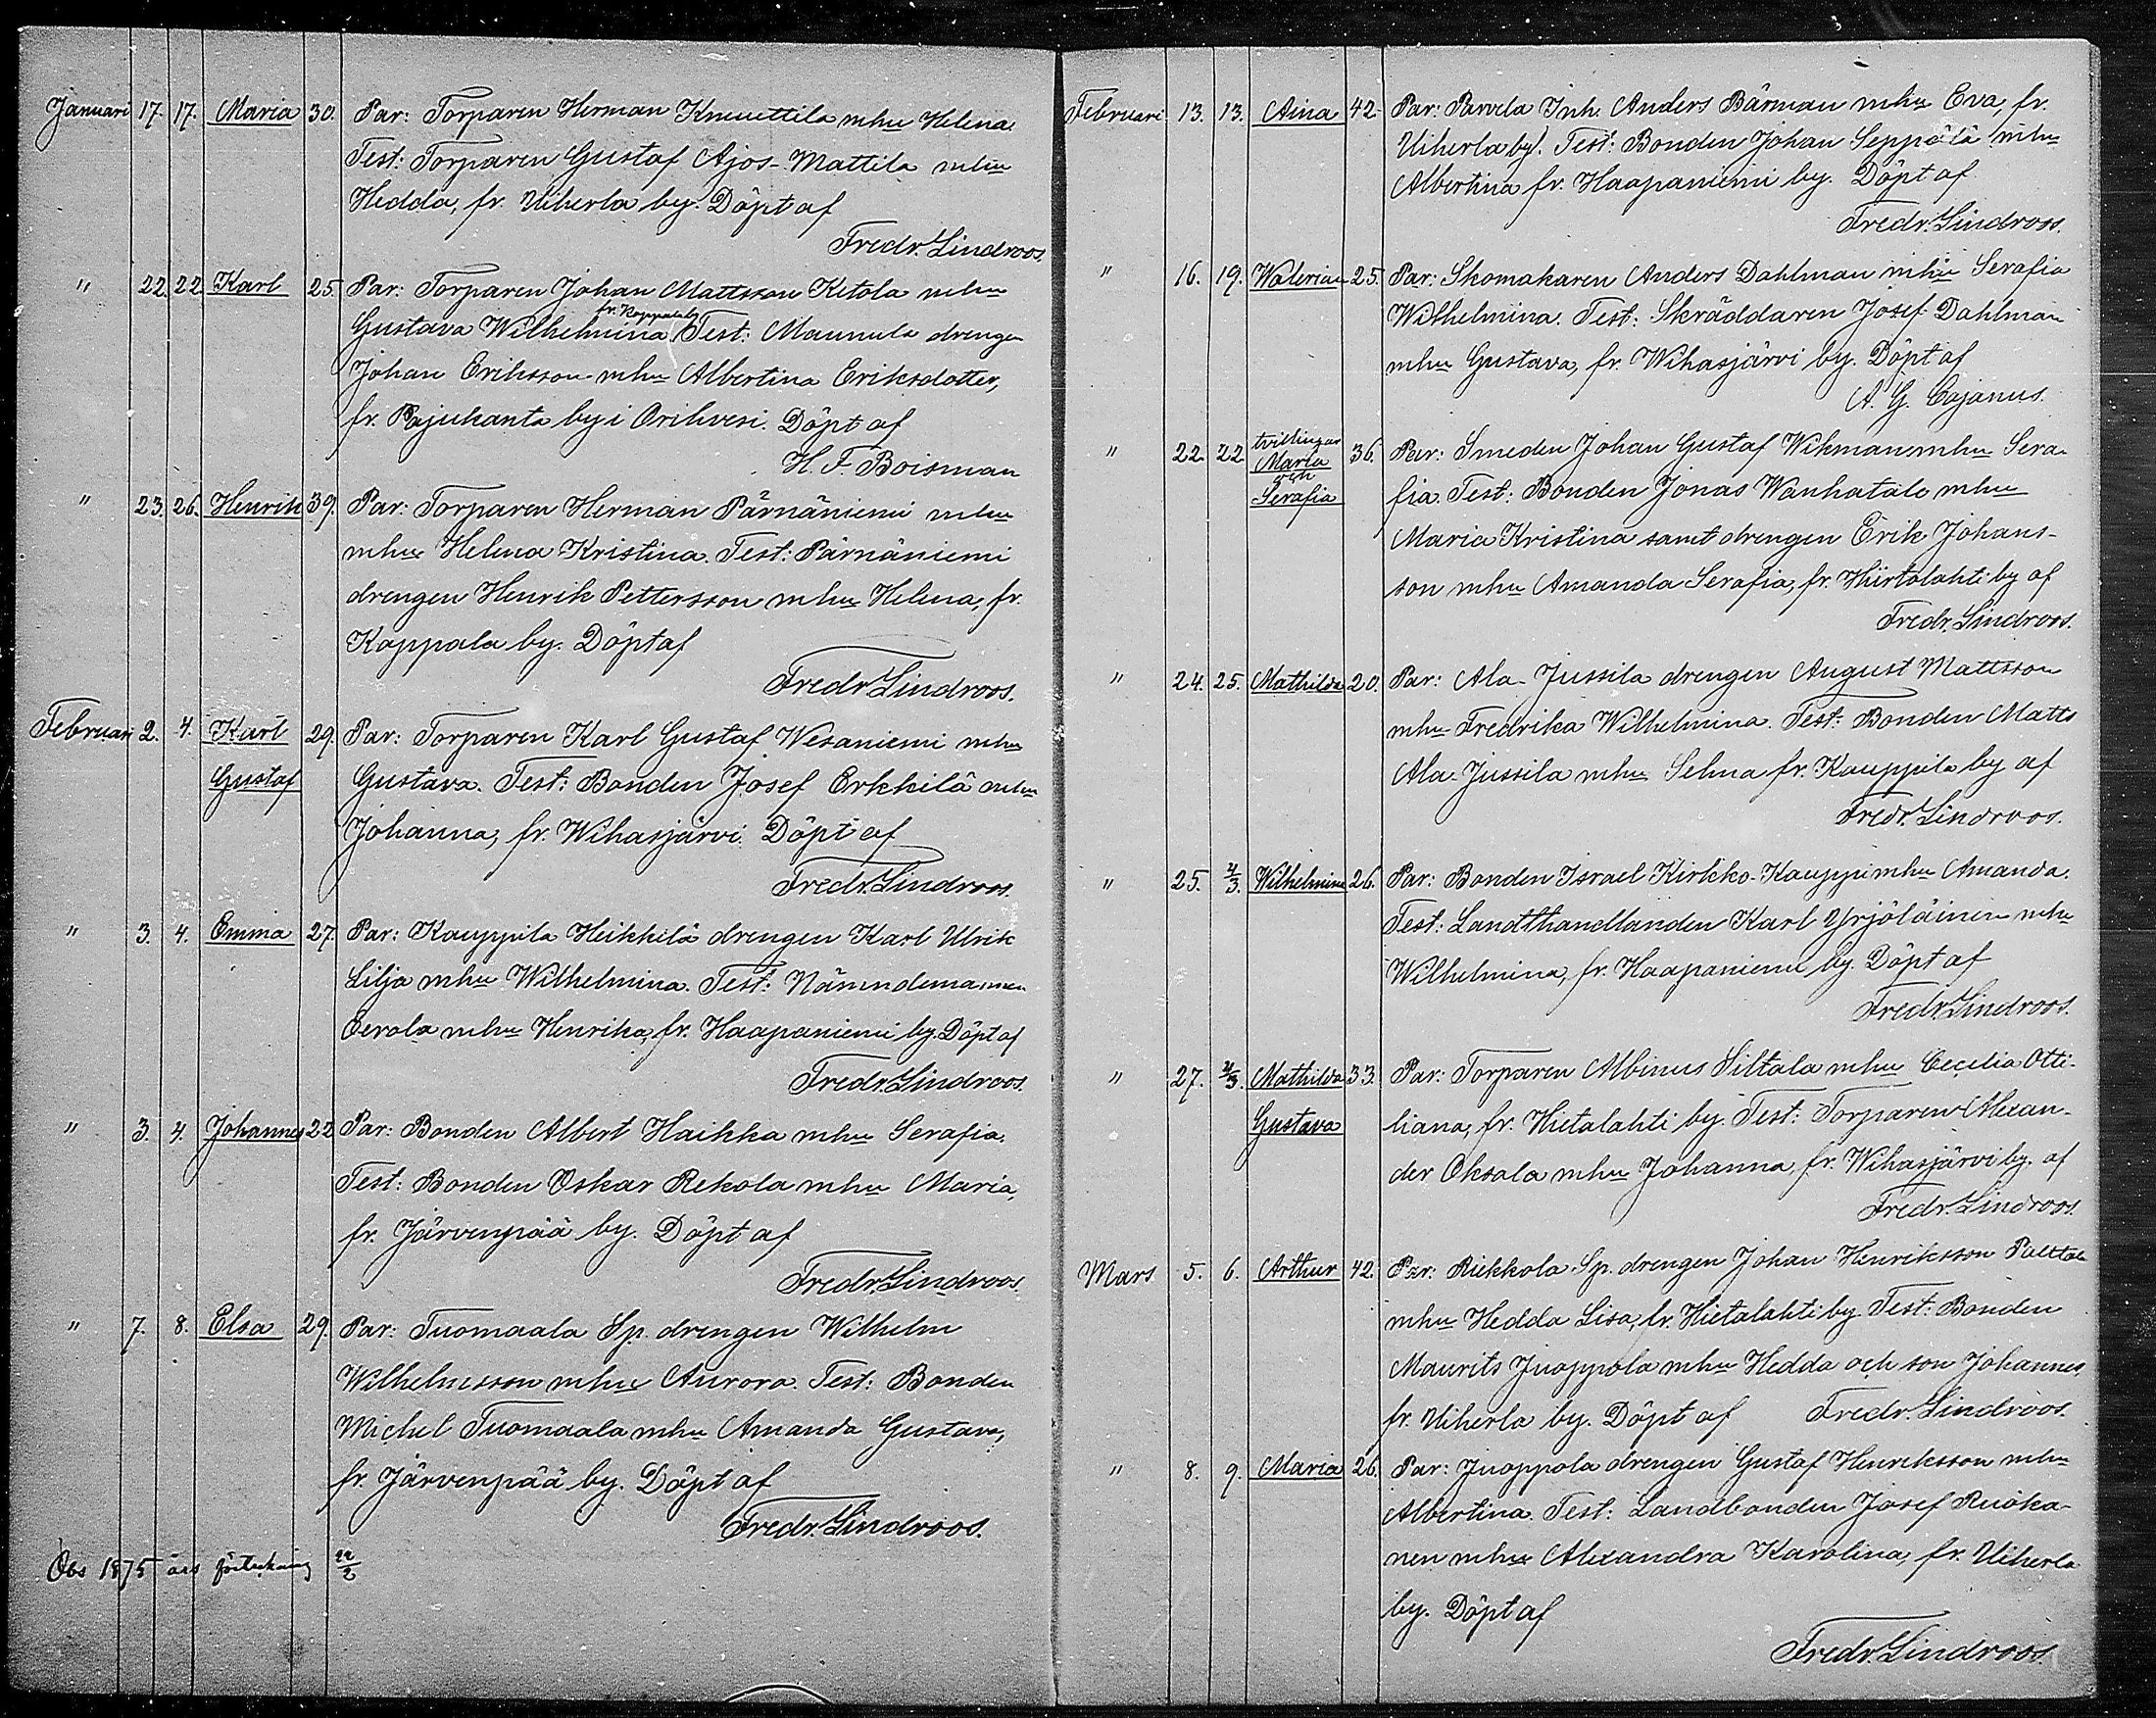 Januari 17. 17. Maria 30. Par: Torparen Herman Knuuttila mhu Helena.
Test: Torparen Gustaf Ajos-Mattila mhu
Hedda, fr. Uiherla by. Döpt af
Fredr. Lindroos.
" 22. 22. Karl 25. Par: Torparen Johan Mattsson Ketola mhu
fr. Koppala by
Gustava Wilhelmina. Test: Maunula drengen
Johan Eriksson mhu Albertina Eriksdotter,
fr. Pajukanta by i Orihvesi. Döpt af
H. F. Boisman
" 23. 26. Henrik 39. Par: Torparen Herman Pärnäniemi mhu
mhu Helena Kristina. Test: Pärnäniemi
drengen Henrik Pettersson mhu Helena, fr.
Kappala by. Döpt af
Fredr. Lindroos.
Februari 2. 4. Karl 29. Par: Torparen Karl Gustaf Wesaniemi mhu
Gustaf Gustava. Test: Bonden Josef Erkkilä mhu
Johanna, fr. Wihasjärvi. Döpt af
Fredr. Lindroos.
" 3. 4. Emma 27. Par: Kauppila Heikkilä drengen Karl Ulrik
Lilja mhu Wilhelmina. Test: Nämndemannen
Eerola mhu Henrika, fr. Haapaniemi by. Döpt af
Fredr. Lindroos.
" 3. 4. Johannes 22 Par: Bonden Albert Haikka mhu Serafia.
Test: Bonden Oskar Rekola mhu Maria,
fr. Järvenpää by. Döpt af
Fredr. Lindroos.
" 7. 8. Elsa 29. Par: Tuomaala Sp. drengen Wilhelm
Wilhelmsson mhu Aurora. Test: Bonden
Michel Tuomaala mhu Amanda Gustava,
fr. Järvenpää by. Döpt af
Fredr. Lindroos.
Obs 1875 års förteckning 22/2
Februari 13. 13. Aina 42. Par: Parvela Inh. Anders Bärman mhu Eva, fr.
Uiherla by. Test: Bonden Johan Seppälä mhu
Albertina fr. Haapaniemi by. Döpt af
Fredr. Lindroos.
" 16. 19. Walerian 25. Par: Skomakaren Anders Dahlman mhu Serafia
Wilhelmina. Test: Skräddaren Josef Dahlman
mhu Gustava, fr. Wihasjärvi by. Döpt af
A. G. Cajanus.
" 22. 22 tvillingar
Maria 36. Par: Smeden Johan Gustaf Wikman mhu Sera-
och
Serafia fia. Test: Bonden Jonas Wanhatalo mhu
Maria Kristina samt drengen Erik Johans-
son mhu Amanda Serafia, fr. Hirtolahti by af
Fredr. Lindroos.
" 24. 25. Mathilda 20. Par: Ala-Jussila drengen August Mattsson
mhu Fredrika Wilhelmina. Test: Bonden Matts
Ala-Jussila mhu Selma fr. Kauppila by af
Fredr. Lindroos.
" 25. 4/3. Wilhelmina 26. Par: Bonden Israel Kirkko-Kauppi mhu Amanda.
Test: Landthandlanden Karl Yrjöläinen mhu
Wilhelmina, fr. Haapaniemi by. Döpt af
Fredr. Lindroos.
" 27. 4/3. Mathilda 33. Par: Torparen Albinus Siltala mhu Cecilia Otti-
Gustava liana, fr. Hietalahti by. Test: Torparen Alexan-
der Oksala mhu Johanna, fr. Wihasjärvi by. af
Fredr. Lindroos.
Mars 5. 6. Arthur 42. Par: Riekkola Sp. drengen Johan Henriksson
mhu Hedda Lisa, fr. Hietalahti by. Test: Bonden
Maurits Juoppola mhu Hedda och son Johannes,
fr. Uiherla by. Döpt af Fredr. Lindroos.
" 8. 9. Maria 26. Par: Juoppola drengen Gustaf Henriksson mhu
Albertina. Test: Landbonden Josef Ruoka-
nen mhu Alexandra Karolina, fr. Uiherla
by. Döpt af
Fredr. Lindroos.